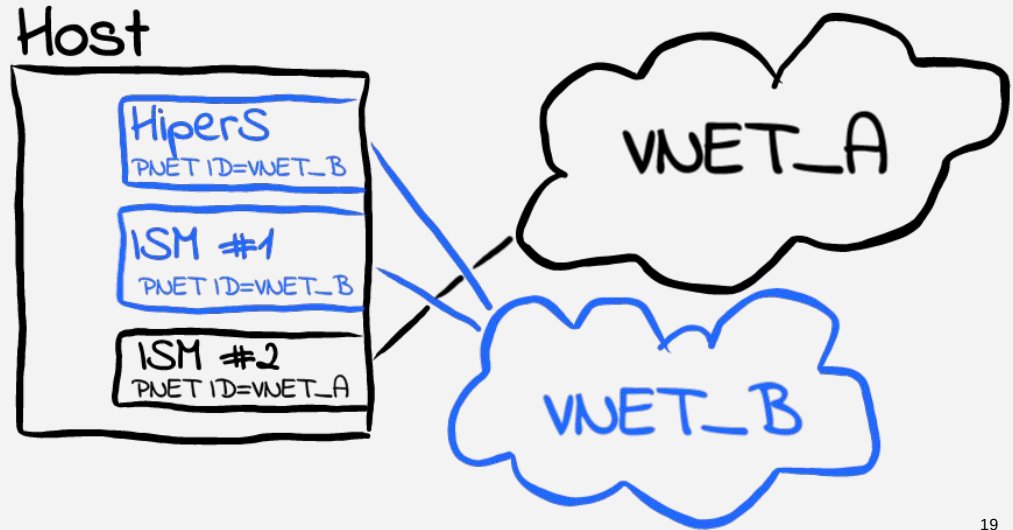 Host
HiperS
PNET ID=VNET_B
ISM #1
PNET ID=VNET_B
ISM #2
PNET ID=VNET_A
VNET_A
VNET_B
19